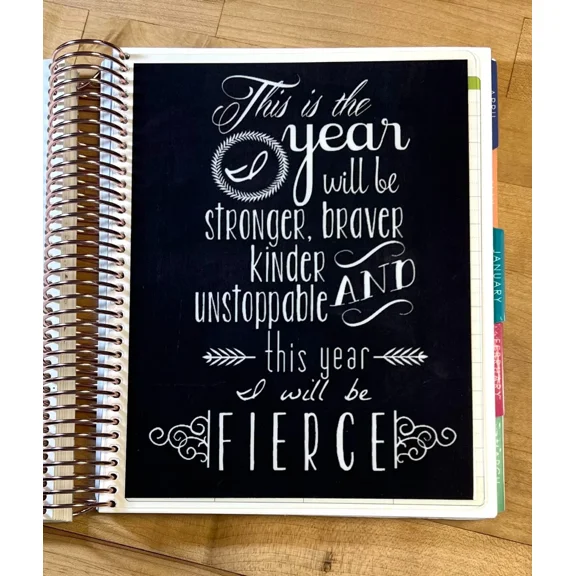 This is the
year
I will be
stronger, braver
kinder
unstoppable AND
this year
I will be
FIERCE
APRIL
JANUARY
FEBRUARY
MARCH